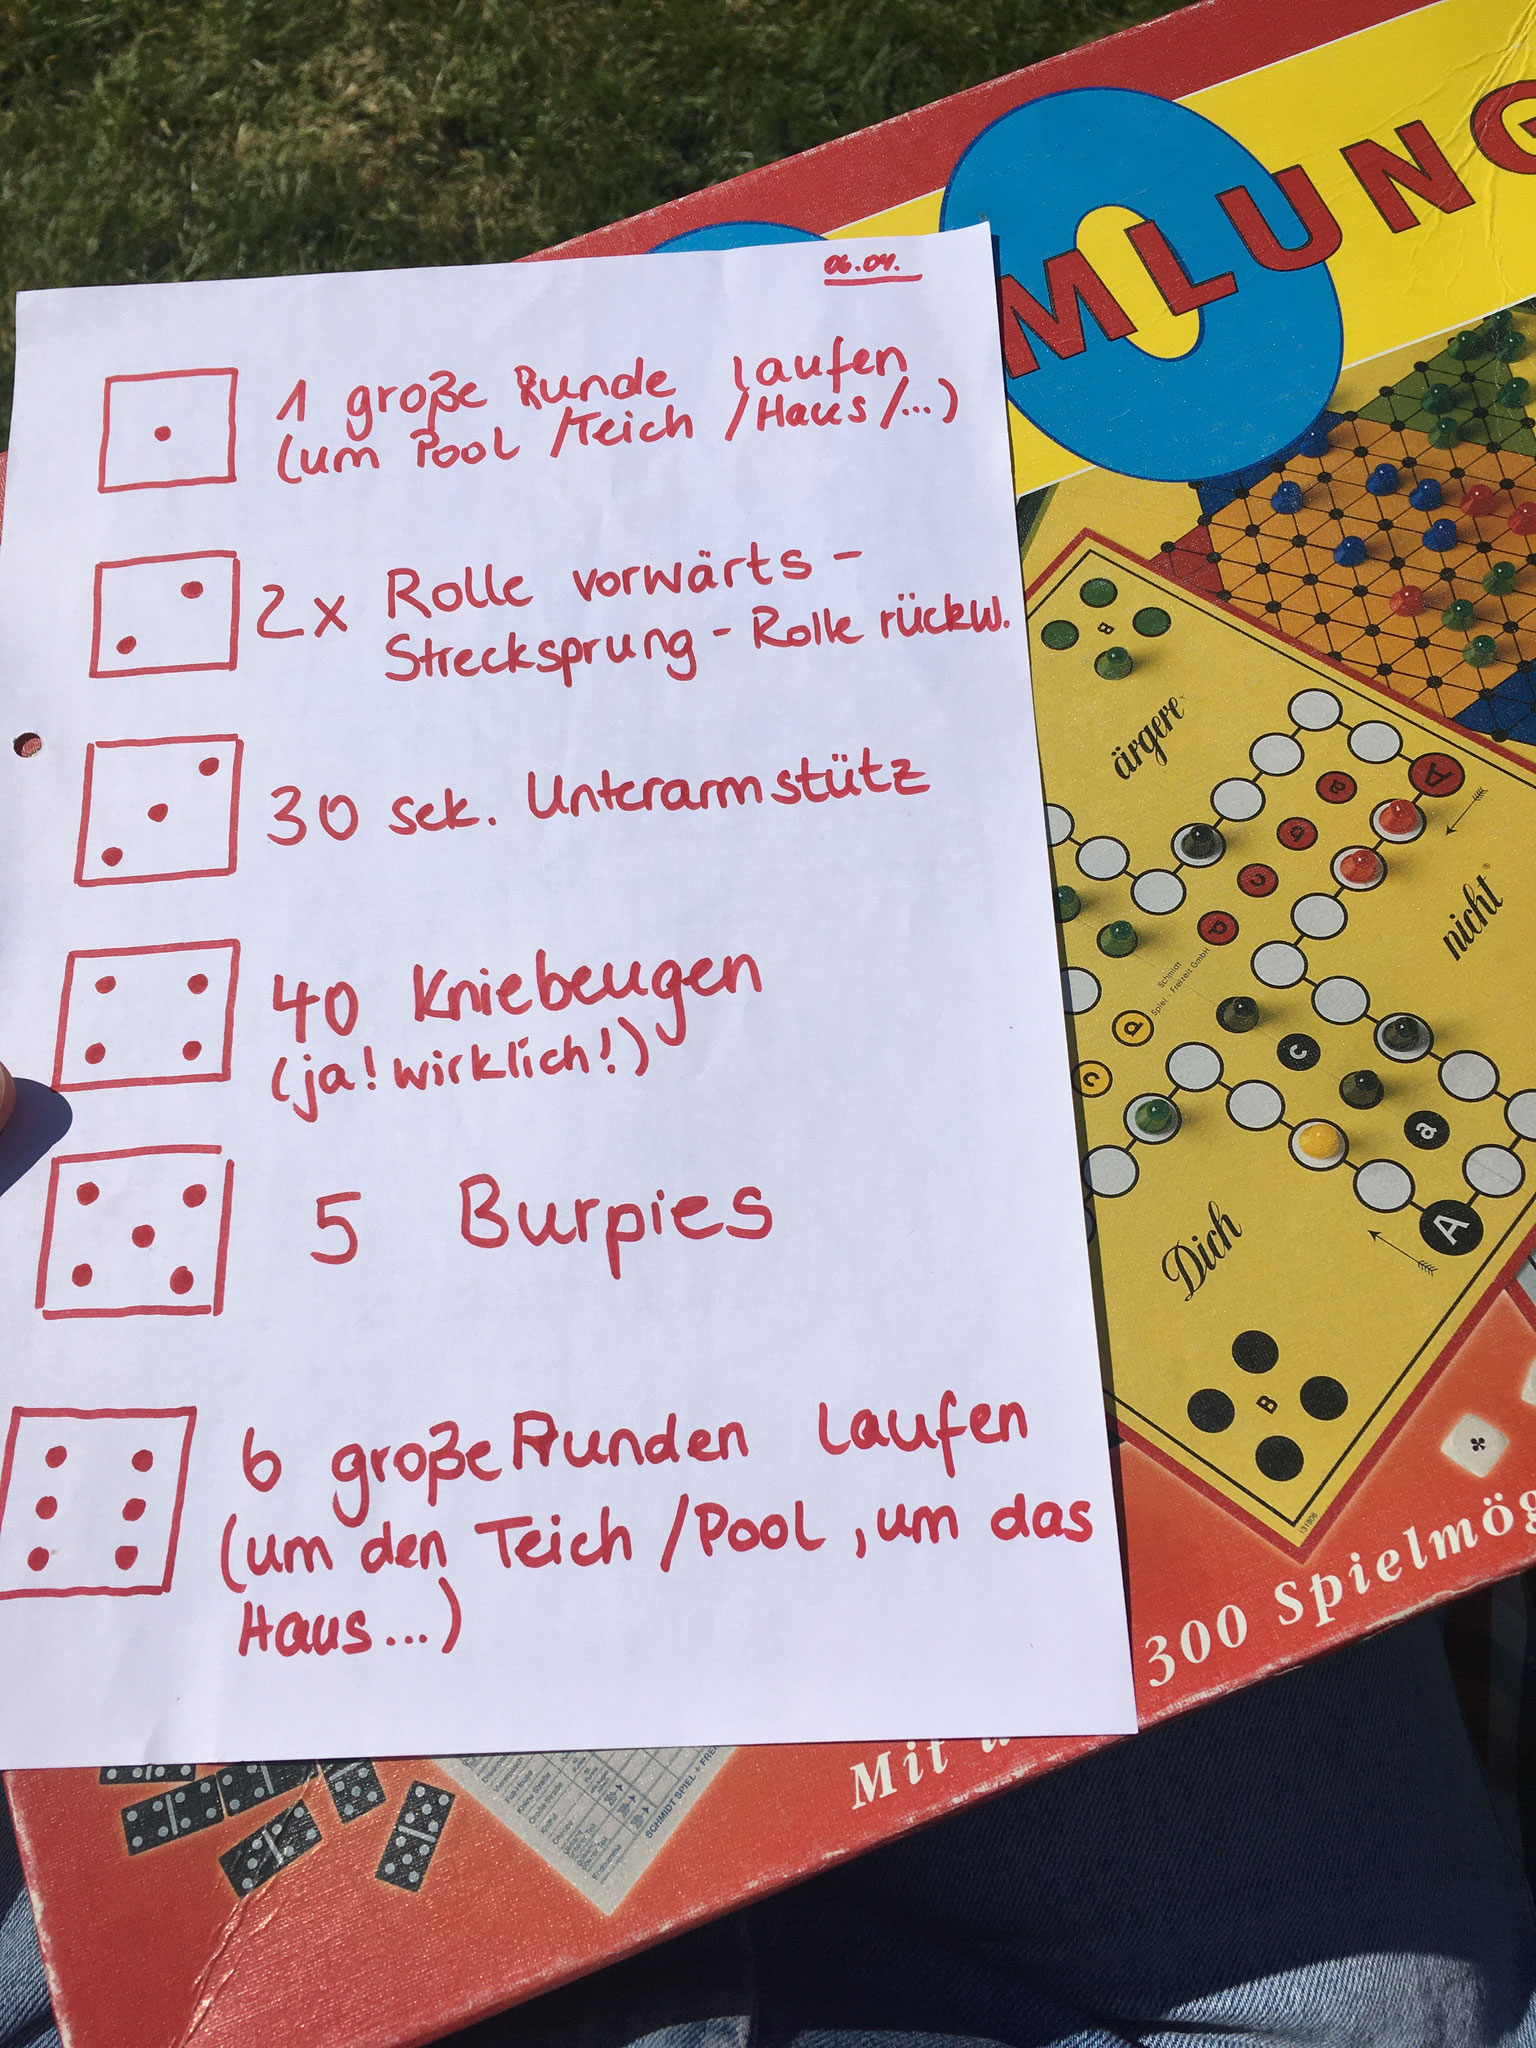 06.04.
1 große Runde laufen
(um Pool /Teich /Haus/...)
2x Rolle vorwärts -
Strecksprung - Rolle rückw.
30 sek. Unterarmstütz
40 Kniebeugen
(ja! wirklich!)
5 Burpies
6 große Runden laufen
(um den Teich /Pool, um das
Haus...)
MLUNG
B
ärgere
nicht
Dich
A
a
b
c
d
Schmidt
Spiel + Freizeit GmbH
d
c
c
a
A
B
131806
300 Spielmög
Mit
SCHMIDT SPIEL + FREI